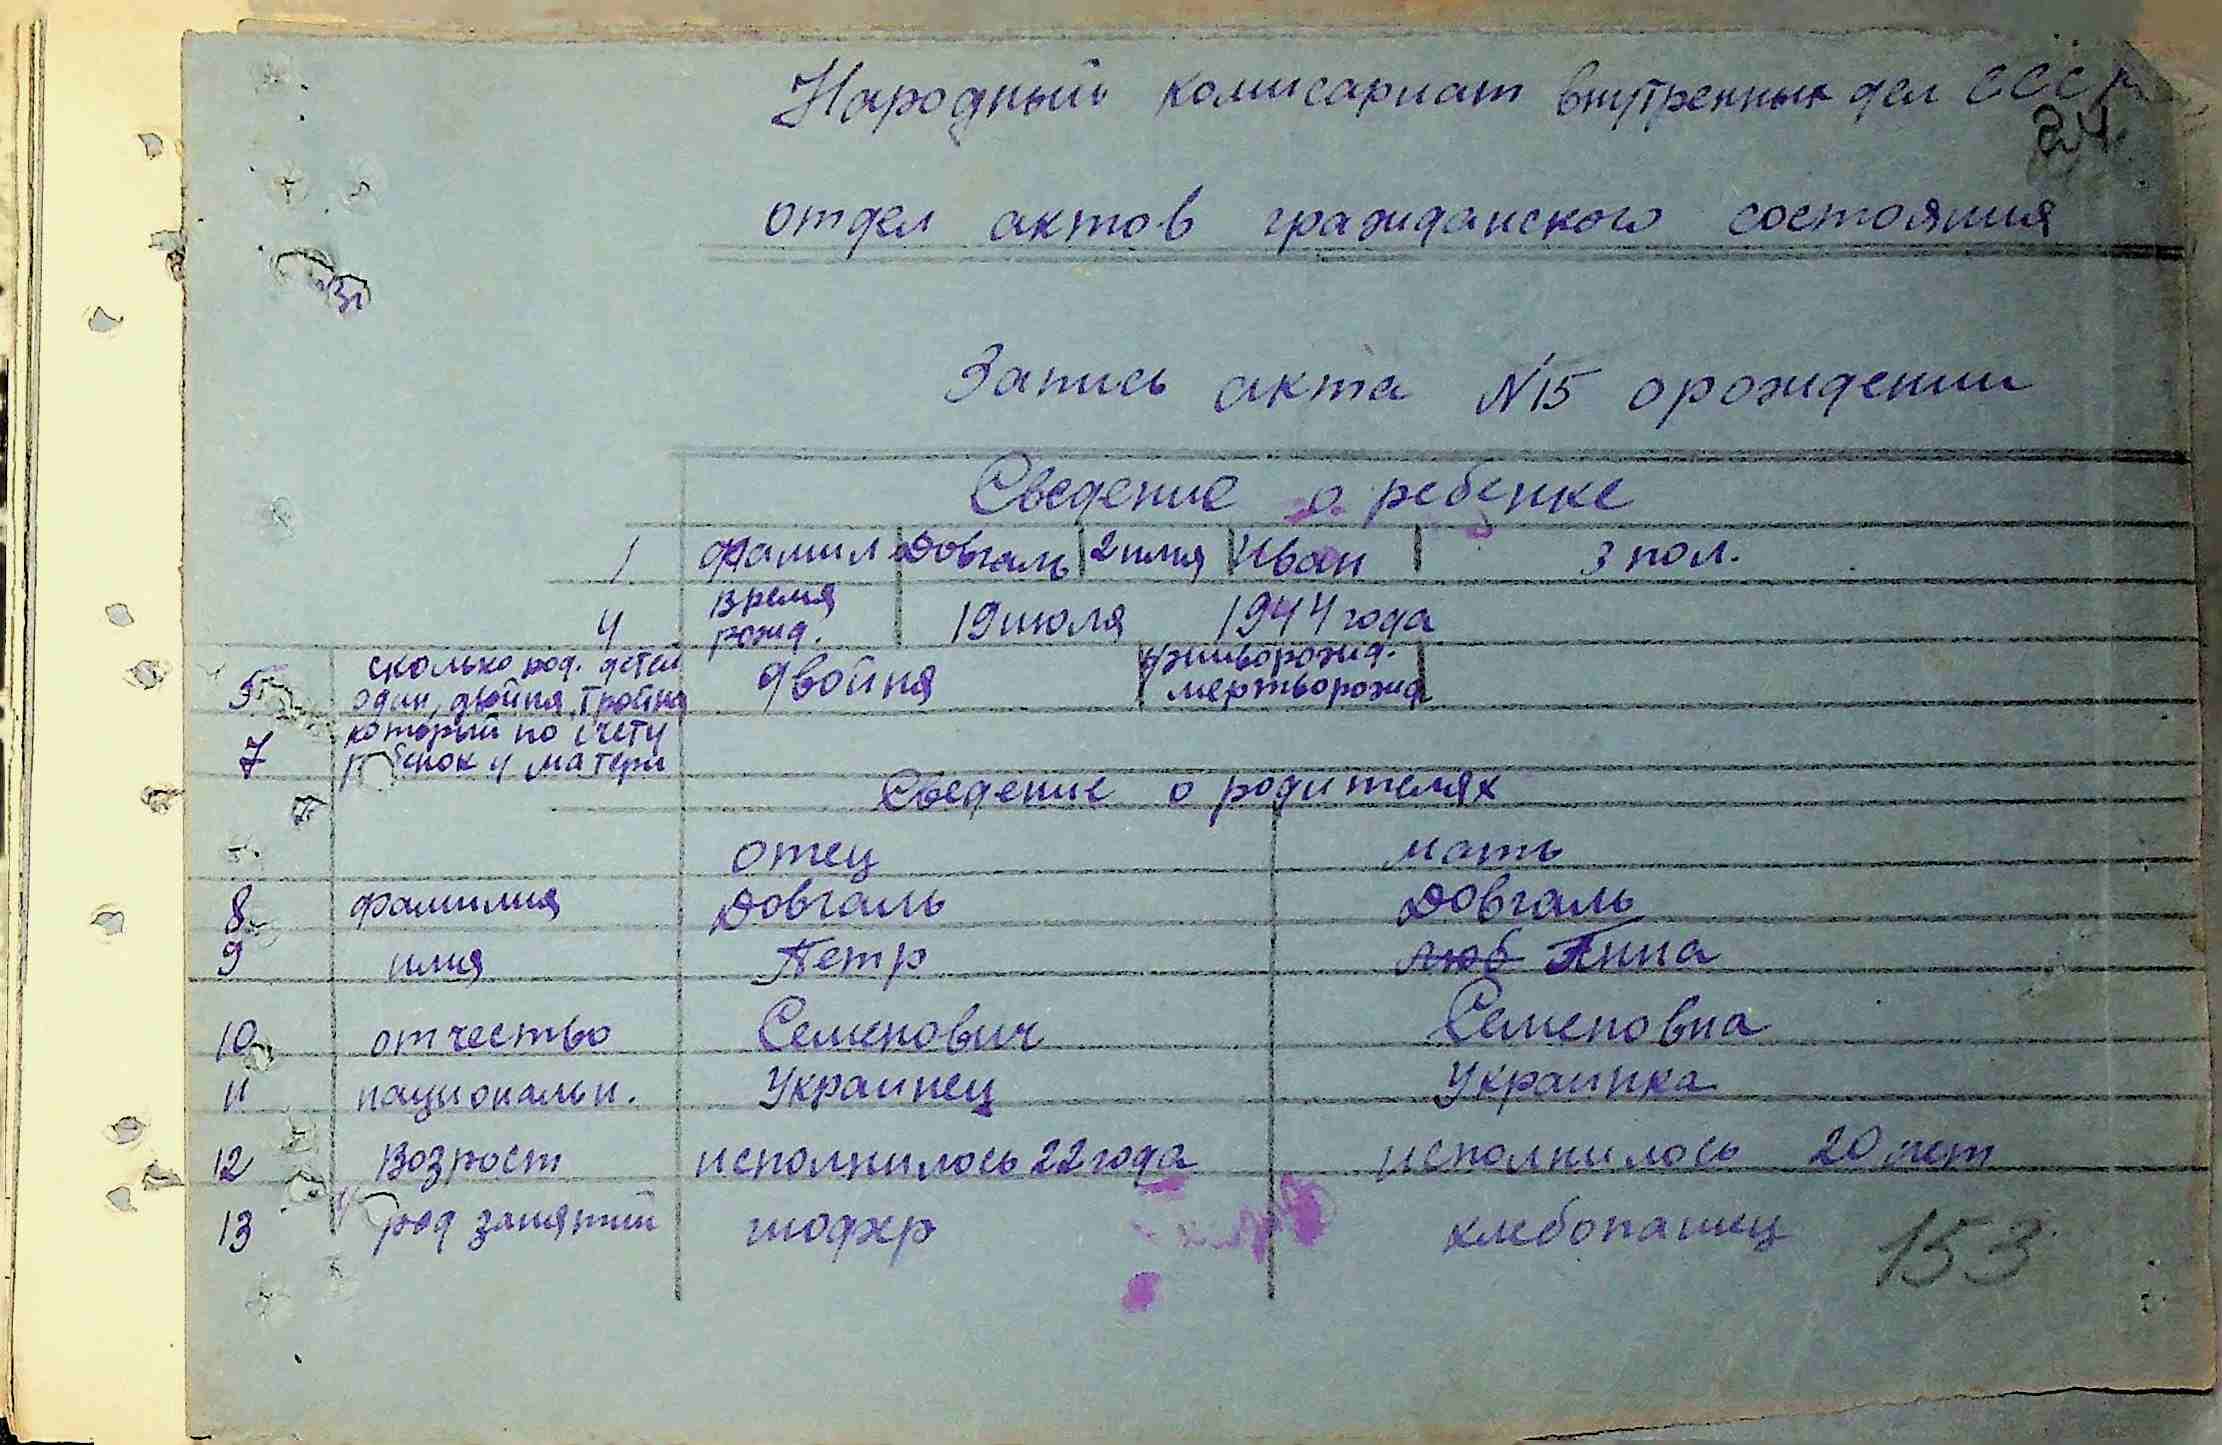 Народный комисариат внутренных дел СССР
24
отдел актов гражданского состояния
Запись акта N15 о рождении
Сведение о ребенке
1 фамил Довгаль 2 имя Иван 3 пол.
4 время рожд. 19 июля 1944 года
5 сколько род. детей один, двойня, тройня двойня живорожд. мертворожд
7 который по счету ребенок у матери
Сведение о родителях
отец мать
8 фамилия Довгаль Довгаль
9 имя Петр люб Анна
10 отчество Семенович Семеновна
11 национальн. Украинец Украинка
12 Возрост исполнилось 22 года исполнилось 20 лет
13 род занятий шофер хлебопашец
153